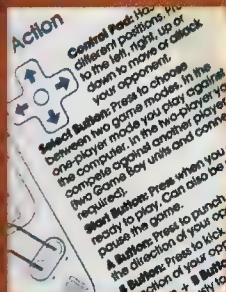 Action
Control Pad: Has
different positions. Press
to the left, right, up or
down to move or attack
your opponent.
Select Button: Press to choose
between two game modes. In the
one-player mode you play against
the computer. In the two-player
compete against another player
(two Game Boy units and
required).
Start Button: Press when you
ready to play. Can also be
pause the game.
A Button: Press to punch
the direction of your
B Button: Press to kick
of your
+ B